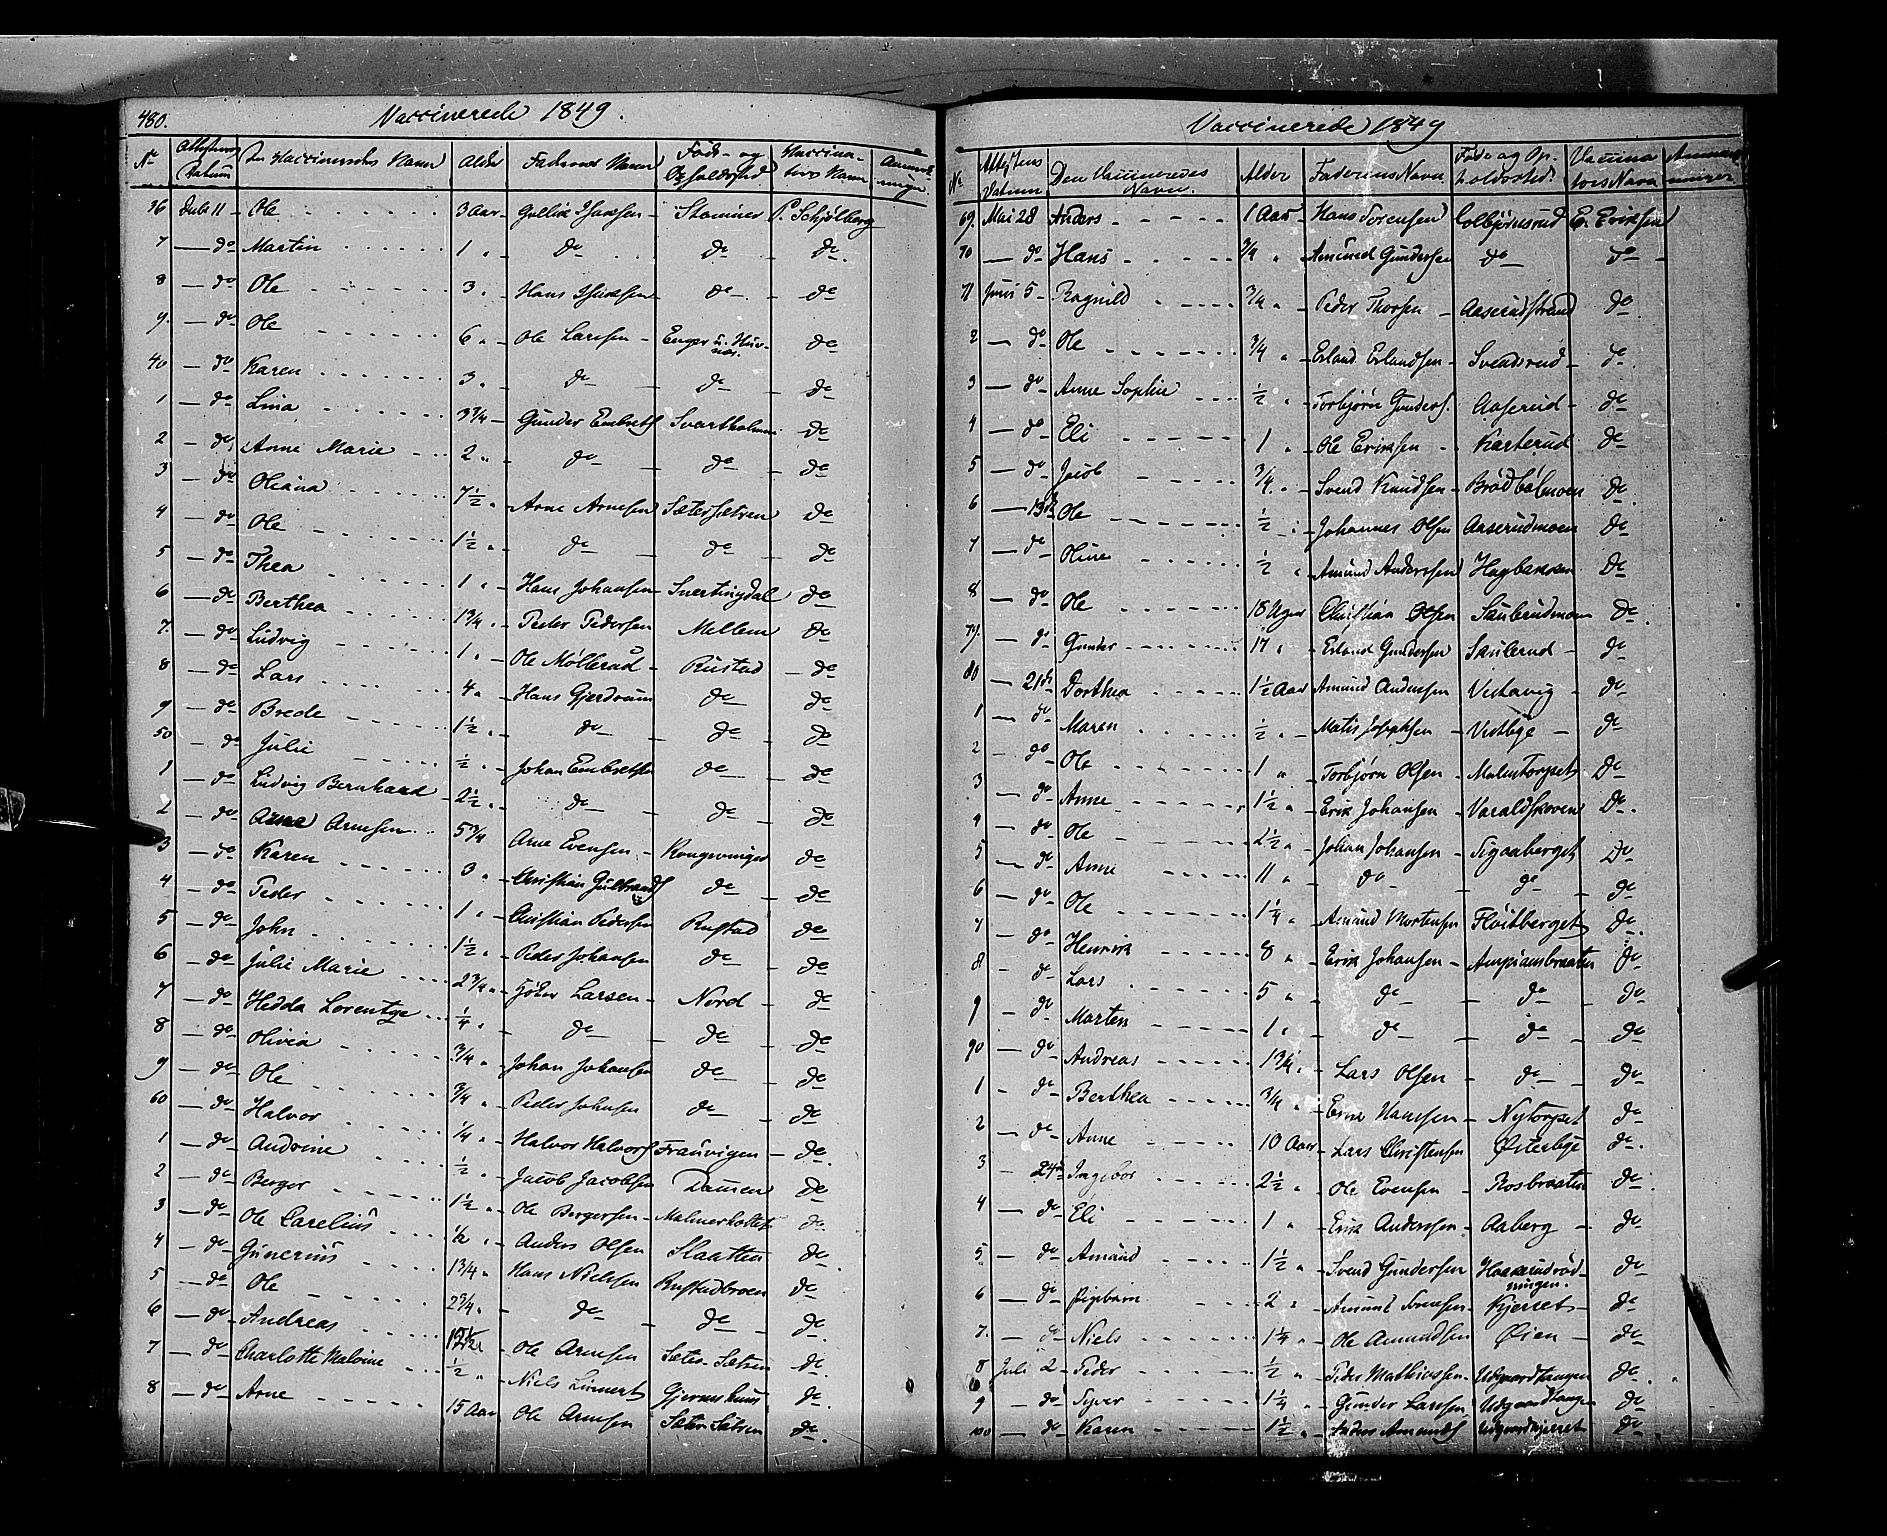 480. Vaccinerede 1849.
No Attestens Datum Den Vaccineredes Navn Alder Faderens Navn Føde- og Opholdssted Vaccinateurs Navn Anmærkninger
36 Juli 11 - Ole 3 Aar - Gulbrand Isaksen - Stommen P. Schjølberg
7 - do Martin 1 " do do do
8 - do Ole 3 " Hans Isaksen - do - do
9. - do Ole 6 " Ole Larssen - Enger do
40 - do Karen 3 " do do do
1 - do Lina 3 3/4 - Gunder Embrets Svartholmen do
2 - do Anne Marie 2 " do do do
3 - do Oleana 7 1/2 " Arne Arnesen Sætersætren do
4 - do Ole 1 1/2 " do do do
5 - do Thea 1 " Hans Johansen - Snertingdal do
6 - do Berthea 1 3/4 " Peder Pedersen Mellem do
7. - do Ludvig 1 " Ole Møllerud - Rustad - do
8 - do Lars 4 " Hans Gjerdrum do do
9 - do Brede 1 1/2 " do do do
50 - do Julie 1/2 " Johan Embretsen do do
1 - do Ludvig Bernhard 2 1/2 " do do do
2 - do Arne Arnesen 5 3/4 Arne Evensen - Kongsvinger do
3 - do Karen 3 " Christian Gulbrands do do
4 - do Peder 1 " Christian Pedersen Rustad do
5 - do John 1 1/2 " Peder Johansen do do
6 - do Julie Marie 2 3/4 " Larsen - Nord - do
7 - do Hedda Lorentze 1/4 " do do do
8 - do Olivia 3/4 " Johan Johansen do do
9 - do Ole 3/4 " Peder Johnsen do do
60 - do Halvor 1/4 " Halvor Halvors Frauvigen - do
1 - do Andrine 1/2 " Jacob Jacobsen Dammen do
2 - do Berger 1 1/2 " Ole Bergersen - Malmerholtet do
3 - do Ole Carelius 1/2 " Anders Olsen Slaatten do
4 - do Gunerius 1 3/4 " Hans Nielssen Rustadbroen do
5 - do Ole 2 3/4 " do do do
6 - do Andreas Ole Arnesen Sæter Sætren do
7 - do Charlotte Malvine 1/2 " Niels Linnert Gjermshuus do
8 - do Arne 15 Aar Ole Arnesen Sæter Sætren do
Vaccinerede 1849
No Attestens Datum Den Vaccineredes Navn. Alder Faderens Navn Føde og Opholdssted Vaccinators Navn Anmærkninger
69. Mai 28 Anders 1 Aar - Hans Torensen Colbjørnsrud E. Eriksen
70 - do Hans 3/4 " Amund Gundersen do do
71 Juni 5 - Ragnild 3/4 " Peder Thorsen - Aaserudstrand do
2 - do Ole 3/4 " Erland Erlandsen - Svensrud - do
3 - do Anne Sophie 1/2 " Torbjørn Gunders. Aaserud - do
4 - do Eli 1 " Ole Eriksen - Karterud do
5 - do Jacob 3/4 " Svend Knudsen - Brødbølmoen do
6 - 13de Ole 1/2 " Johannes Olsen Aaserudmoen do
7 - do Oline 1/2 " Amund Anderssen Hagbakken do
8 - do Ole 18 Uger Christian Olsen Skulerudmoen do
79. - do Gunder 17 " Erland Gundersen Skulerud - do
80 - 21de Dorthea 1 1/2 Aar Amund Andersen Vestavig - do
1 - do Maren 1/2 " Matis Josephsen - Vestbye - do
2 - do Ole 1 " Torbjørn Olsen - Malmtorpet do
3 - do Anne 1 1/2 " Erik Johansen - Varaldskoven do
4 - do Ole 2 1/2 " Johan Johansen - Sigaaberget do
5 - do Anne 11 " do - do - do
6 - do Ole 1 1/4 " Amund Mortensen Fløitberget do
7 - do Henrik 8 " Erik Johansen - Ampiansbraaten do
8 - do Lars 5 " do - do - do
9 - do Marten 1 " do - do - do
90 - do Andreas 1 3/4 " Lars Olsen - do - do
1 - do Berthea 3/4 " Erik Hansen - Nytorpet do
2 - do Anne 10 Aar - Lars Christensen Østerbye do
3 - 24de Ingebor 2 1/2 " Ole Evensen - Rosbraaten do
4 - do Eli 1 " Erik Anderssen - Aaberg - do
5 - do Amund 1 1/2 " Svend Gundersen Haakerudrødningen. do
6 - do 2 " Amund Svensen - Kjerret - do
7. - do Niels 1 1/4 " Ole Amundsen Øien - do
8 Juli 2 - Peder 1/2 " Peder Mathiassen - Udgaardtangen do
9 - do Syver 1 1/4 " Gunder Larssen Udgaardtangen do
100 - do Karen 1 1/2 " Anders Amunds Udgaardkjerret do